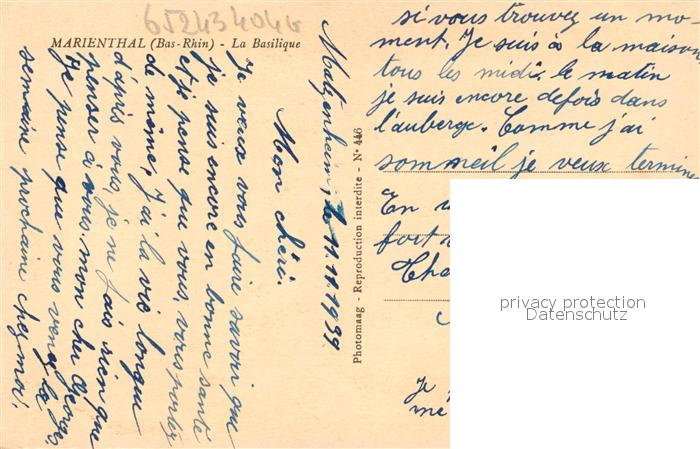 652434046
MARIENTHAL (Bas-Rhin) - La Basilique
Matzenheim, le 11.11.1939.
Mon chéri.
Je veux vous faire savoir que
je suis encore en bonne santé
et je pense que vous, vous portez
de même. J'ai la vie longue
d'après vous, je ne fais rien que
penser à vous mon cher Georges.
Je pense que vous venez la
semaine prochaine chez moi.
Photomaag - Reproduction interdite - N° 446
si vous trouvez un mo-
ment. Je suis à la maison
tous les midi. le matin
je suis encore defois dans
l'auberge. Comme j'ai
sommeil je veux termine
En
fort
Je
mé
privacy protection
Datenschutz